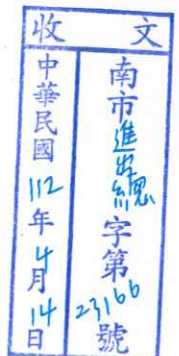 收文
南市進出總字第23166號
中華民國112年4月14日